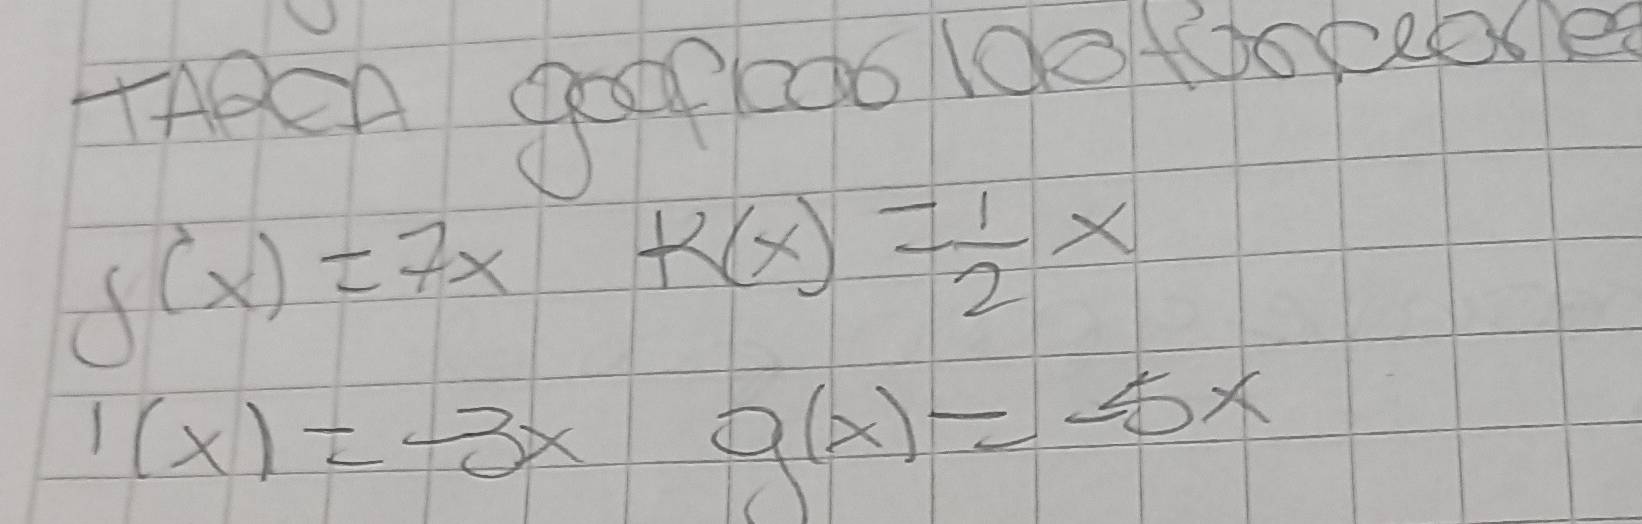 TAREA graficas las funciones
j(x) = 7x K(x) = 1/2 x
i(x) = -3x g(x) = -5x